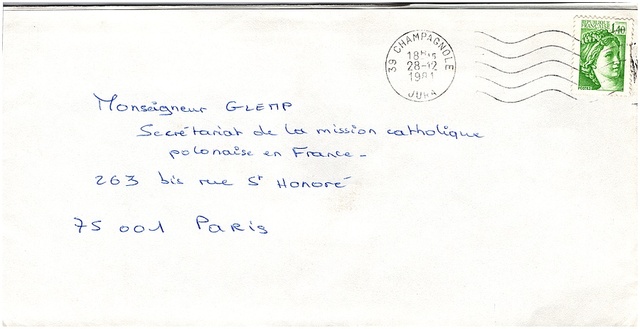 39 CHAMPAGNOLE
18H15
28-12
1981
JURA
1,40
POSTES
Monseigneur GLEMP
Secrétariat de la mission catholique
polonaise en France -
263 bis rue St Honoré
75 001 Paris